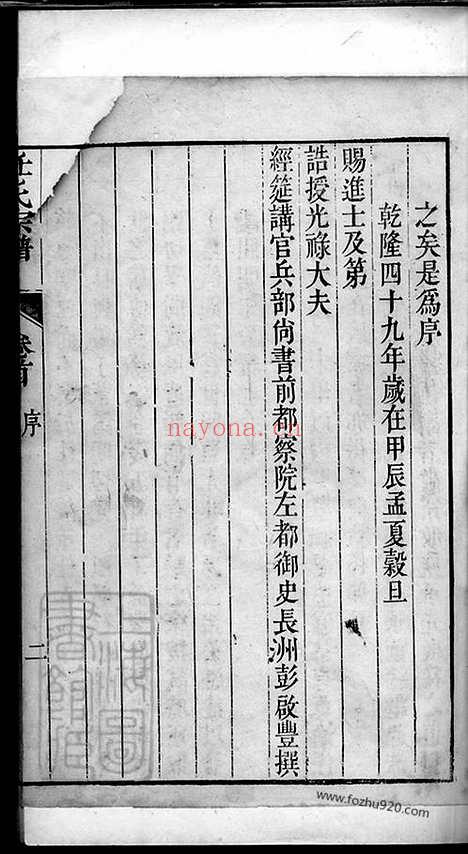 之矣是為序
乾隆四十九年歲在甲辰孟夏穀旦
賜進士及第
誥授光祿大夫
經筵講官兵部尚書前都察院左都御史長洲彭啟豐撰
任氏宗譜
卷首
序
二
上海圖書館藏
nayona.cn
www.fozhu920.com